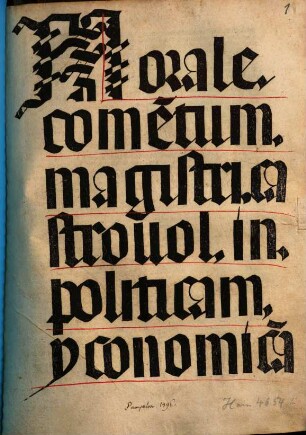 1
Morale.
comẽtum.
magistri.ca
strouol. in.
politicam.
yconomicã
Pampelon 1496.
Hain 4654